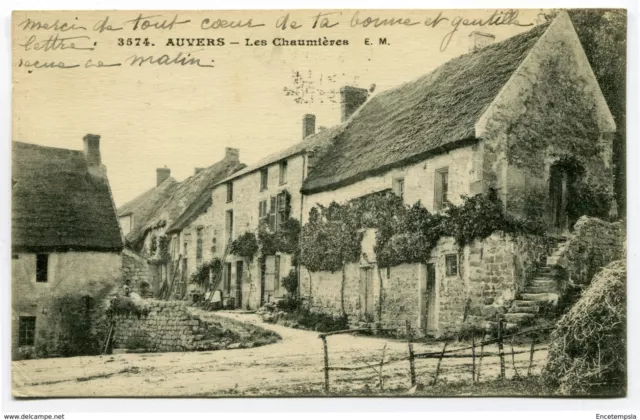 merci de tout cœur de ta bonne et gentille
lettre
3574. AUVERS – Les Chaumières E. M.
recue ce matin.
© Encetempsla